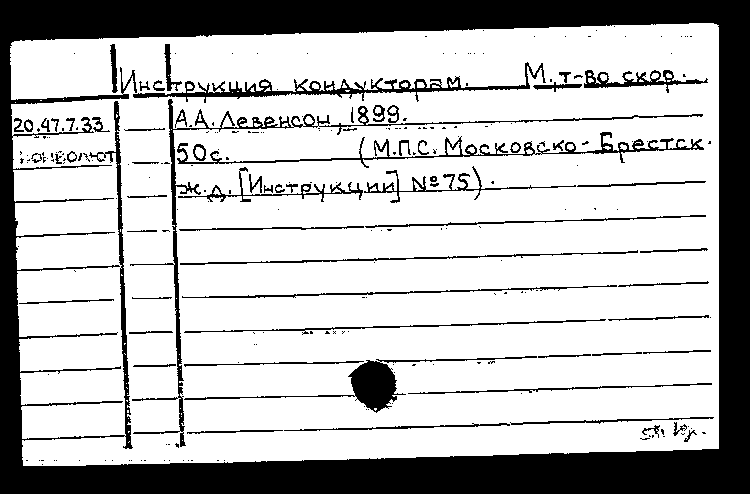 Инструкция кондукторам. М., т-во скор.
20.47.7.33 А.А. Левенсон, 1899.
конволют 50 с. (М.П.С. Московско-Брестск.
ж.д. [Инструкции] № 75).